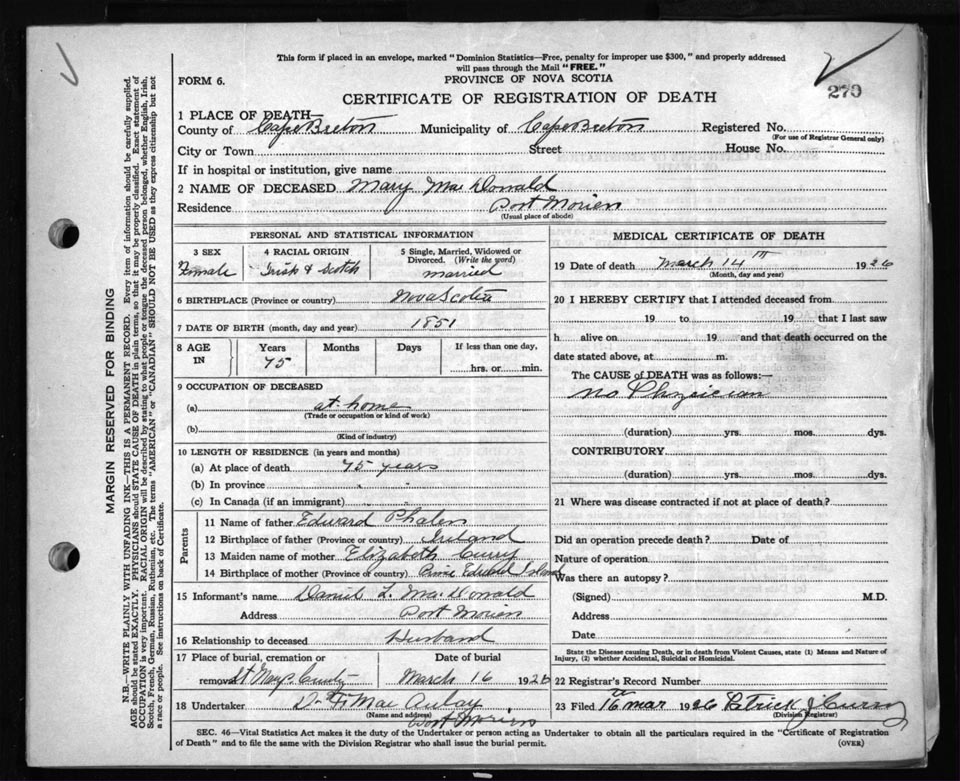 This form if placed in an envelope, marked "Dominion Statistics—Free, penalty for improper use $300," and properly addressed
will pass through the Mail "FREE."
FORM 6.
PROVINCE OF NOVA SCOTIA
279
CERTIFICATE OF REGISTRATION OF DEATH
1 PLACE OF DEATH—
County of Cape Breton Municipality of Cape Breton Registered No.
(For use of Registrar General only)
City or Town Street House No.
If in hospital or institution, give name
2 NAME OF DECEASED Mary Mac Donald
Residence Port Morien
(Usual place of abode)
PERSONAL AND STATISTICAL INFORMATION
3 SEX 4 RACIAL ORIGIN 5 Single, Married, Widowed or
Divorced. (Write the word)
Female Irish & Scotch married
6 BIRTHPLACE (Province or country) Nova Scotia
7 DATE OF BIRTH (month, day and year) 1851
8 AGE IN Years Months Days If less than one day,
75 hrs. or min.
9 OCCUPATION OF DECEASED
(a) at home
(Trade or occupation or kind of work)
(b)
(Kind of industry)
10 LENGTH OF RESIDENCE (in years and months)
(a) At place of death 75 years
(b) In province " "
(c) In Canada (if an immigrant) " "
Parents
11 Name of father Edward Phalen
12 Birthplace of father (Province or country) Ireland
13 Maiden name of mother Elizabeth Curry
14 Birthplace of mother (Province or country) Prince Edward Island
15 Informant's name Daniel L. Mac Donald
Address Port Morien
16 Relationship to deceased Husband
17 Place of burial, cremation or Date of burial
removal St Marys March 16 1926
18 Undertaker Mac Aulay
(Name and address) Port Morien
MEDICAL CERTIFICATE OF DEATH
19 Date of death March 14th 1926
(Month, day and year)
20 I HEREBY CERTIFY that I attended deceased from
19 to 19 that I last saw
h alive on 19 and that death occurred on the
date stated above, at m.
The CAUSE of DEATH was as follows:—
no Physician
(duration) yrs. mos. dys.
CONTRIBUTORY
(duration) yrs. mos. dys.
21 Where was disease contracted if not at place of death?
Did an operation precede death? Date of
Nature of operation
Was there an autopsy?
(Signed) M.D.
Address
Date
State the Disease causing Death, or in death from Violent Causes, state (1) Means and Nature of
Injury, (2) whether Accidental, Suicidal or Homicidal.
22 Registrar's Record Number
23 Filed 16th mar 1926 Patrick J Curry
(Division Registrar)
SEC. 46—Vital Statistics Act makes it the duty of the Undertaker or person acting as Undertaker to obtain all the particulars required in the "Certificate of Registration
of Death" and to file the same with the Division Registrar who shall issue the burial permit.
(OVER)
MARGIN RESERVED FOR BINDING
N.B.—WRITE PLAINLY WITH UNFADING INK—THIS IS A PERMANENT RECORD. Every item of information should be carefully supplied.
AGE should be stated EXACTLY. PHYSICIANS should STATE CAUSE OF DEATH in plain terms, so that it may be properly classified. Exact statement of
OCCUPATION is very important. RACIAL ORIGIN will be described by stating to what people or tongue the deceased person belonged, whether English, Irish,
Scotch, French, German, Russian, Ruthenian, etc. The terms "AMERICAN" or "CANADIAN" SHOULD NOT BE USED as they express citizenship but not
a race or people. See instructions on back of Certificate.